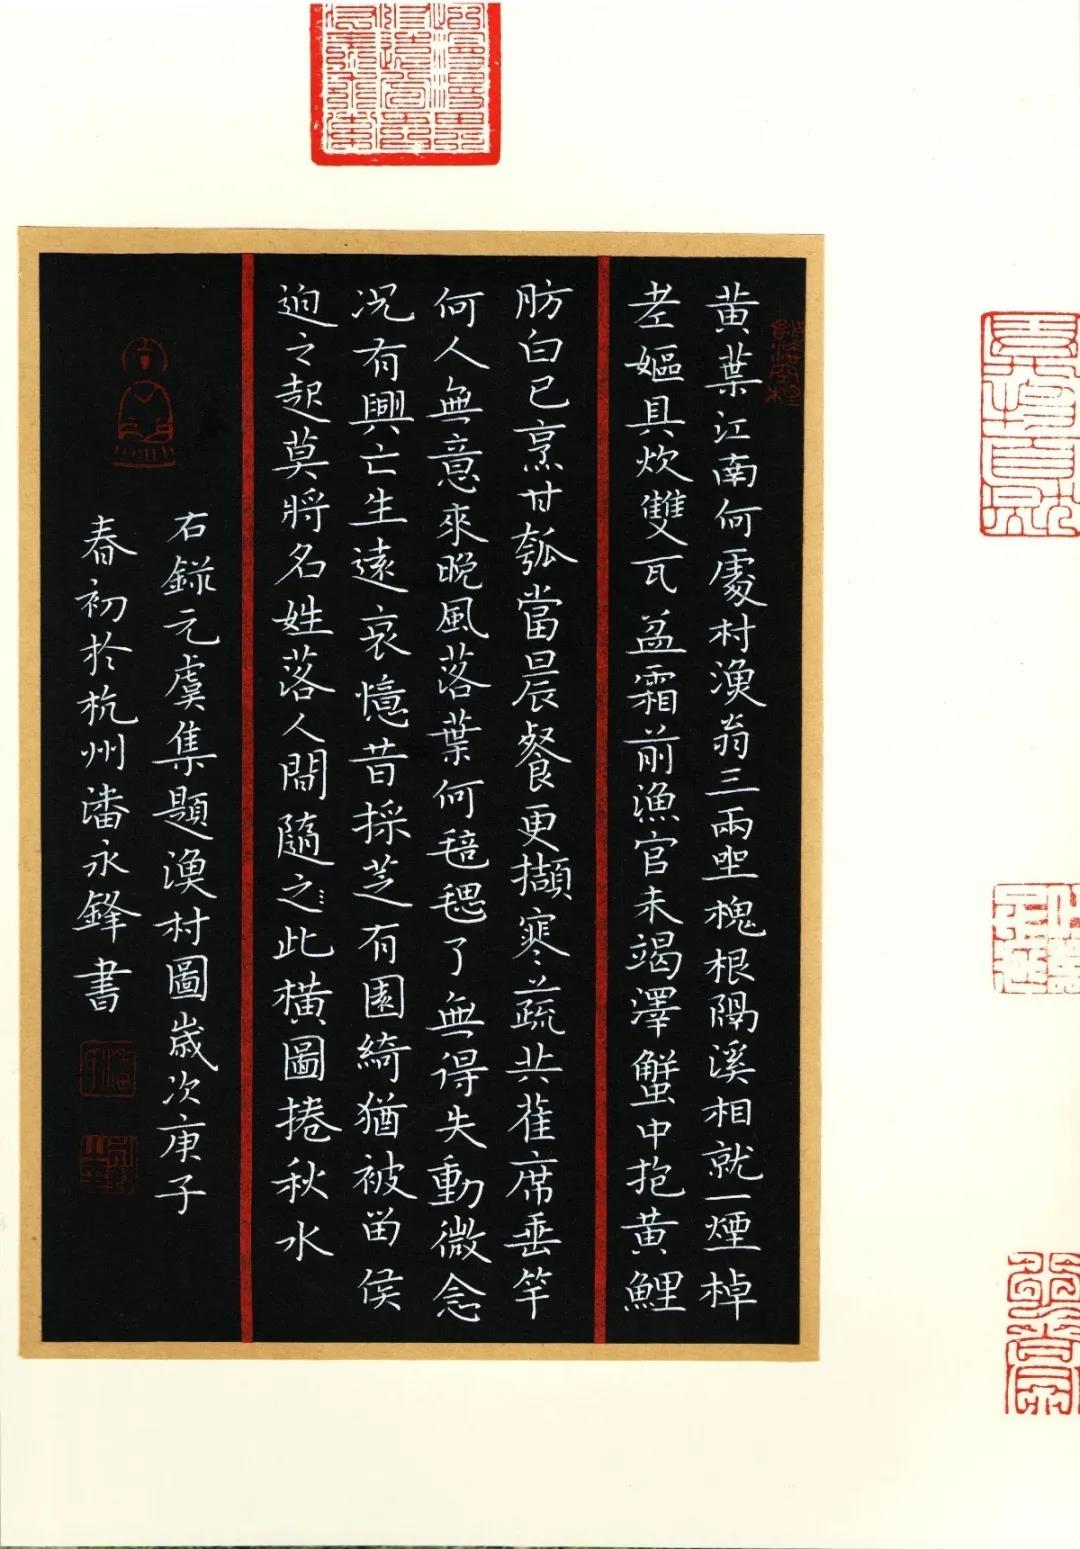 黄葉江南何處村漁翁三兩坐槐根隔溪相就一煙棹
老嫗具炊雙瓦盆霜前漁官未竭澤蟹中抱黄鯉
肪白已烹甘瓠當晨餐更擷寒蔬共萑席垂竿
何人無意來晚風落葉何毰毸了無得失動微念
况有興亡生遠哀憶昔採芝有園綺猶被留侯
迫之起莫將名姓落人間隨之此横圖捲秋水
右録元虞集題漁村圖歲次庚子
春初於杭州潘永鋒書